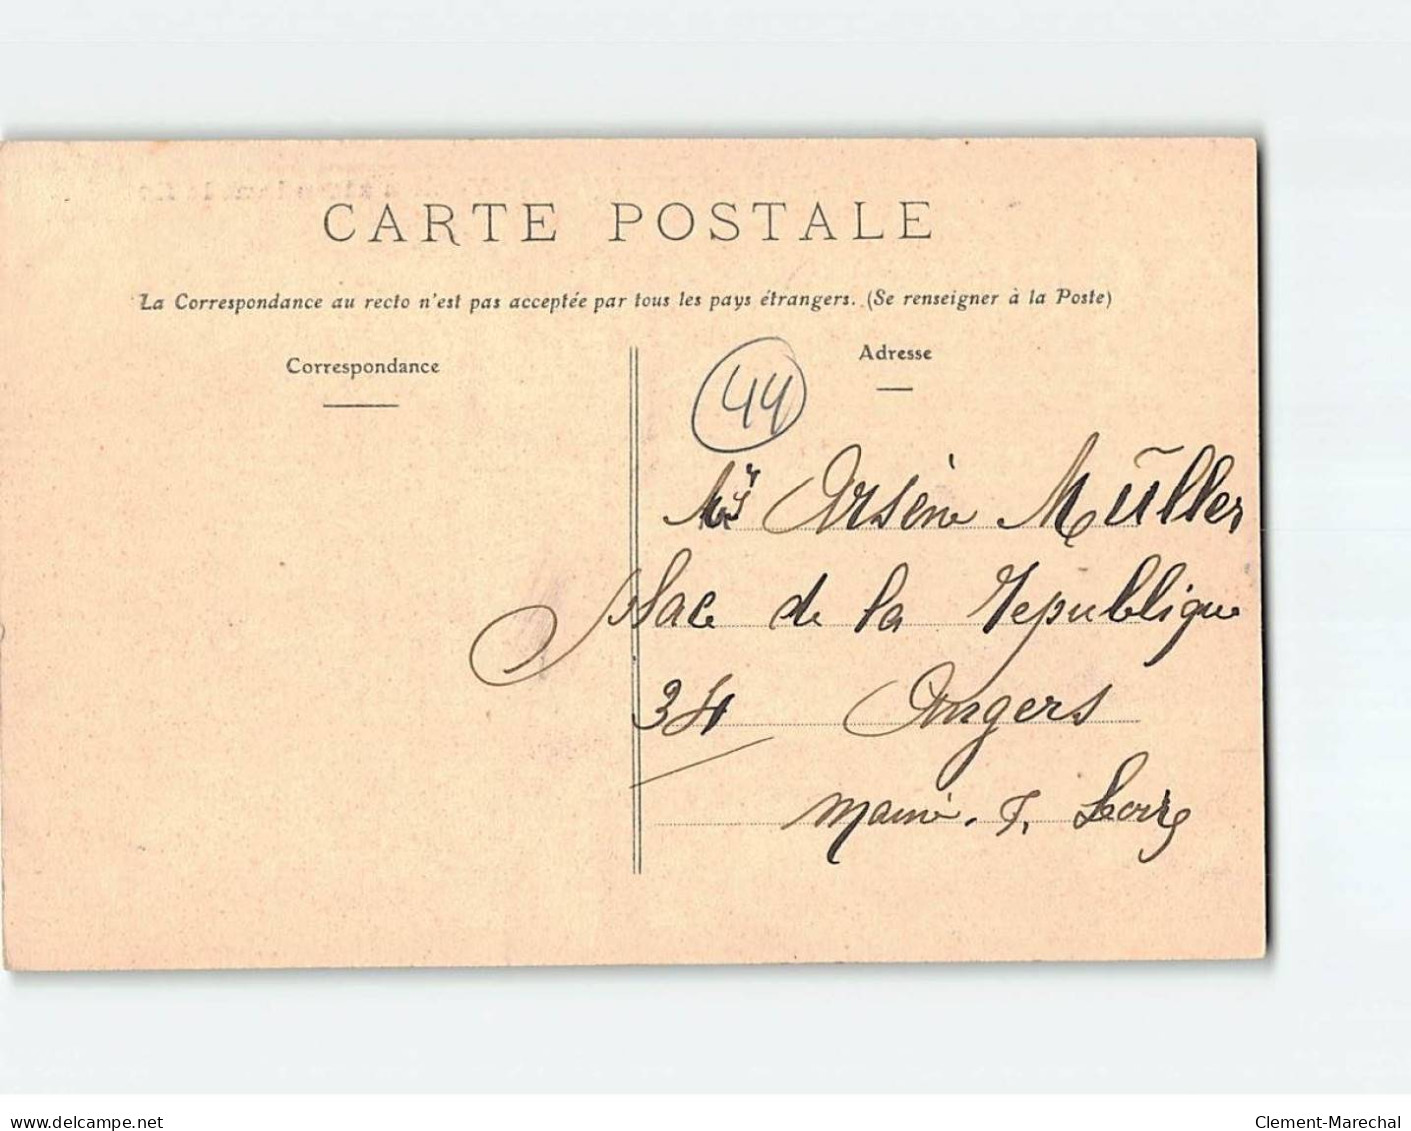 CARTE POSTALE
La Correspondance au recto n'est pas acceptée par tous les pays étrangers. (Se renseigner à la Poste)
Correspondance
Adresse
44
Arsène Müller
Place de la Republique
34 Angers
Maine. . Loire
www.delcampe.net
Clement-Marechal